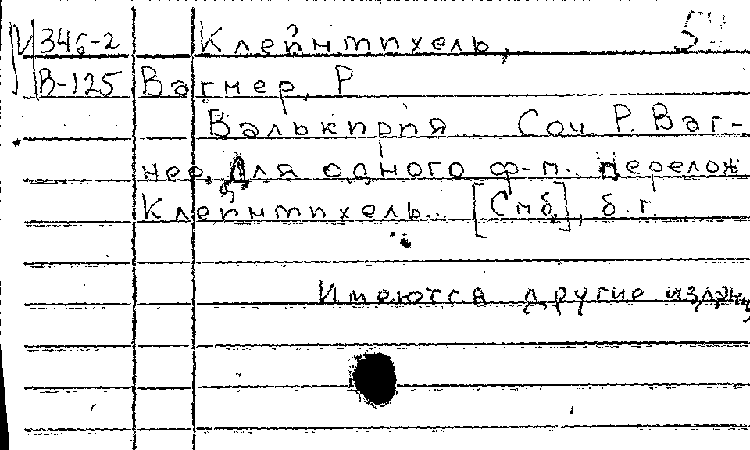 346-2 Клейнмихель,
В-125 Вагнер, Р
Валькирия Соч Р. Ваг-
нер. Для одного ф-п. перелож
Клейнмихель. [Спб], б. г.
Имеются другие издан